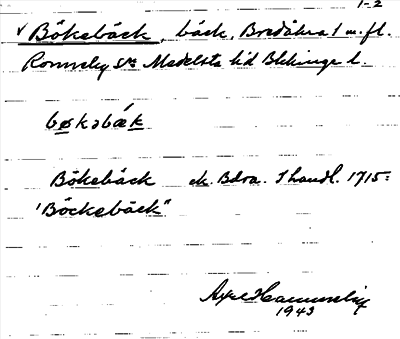 1-2
√ Bökebäck, bäck, Bredåkra 1 m. fl.
Ronneby sn Medelsta hd Blekinge l.
bøkəbǽk
Bökebäck ek. Bdra. 1 handl. 1715:
"Böckebäck"
Axel Hammelix
1943